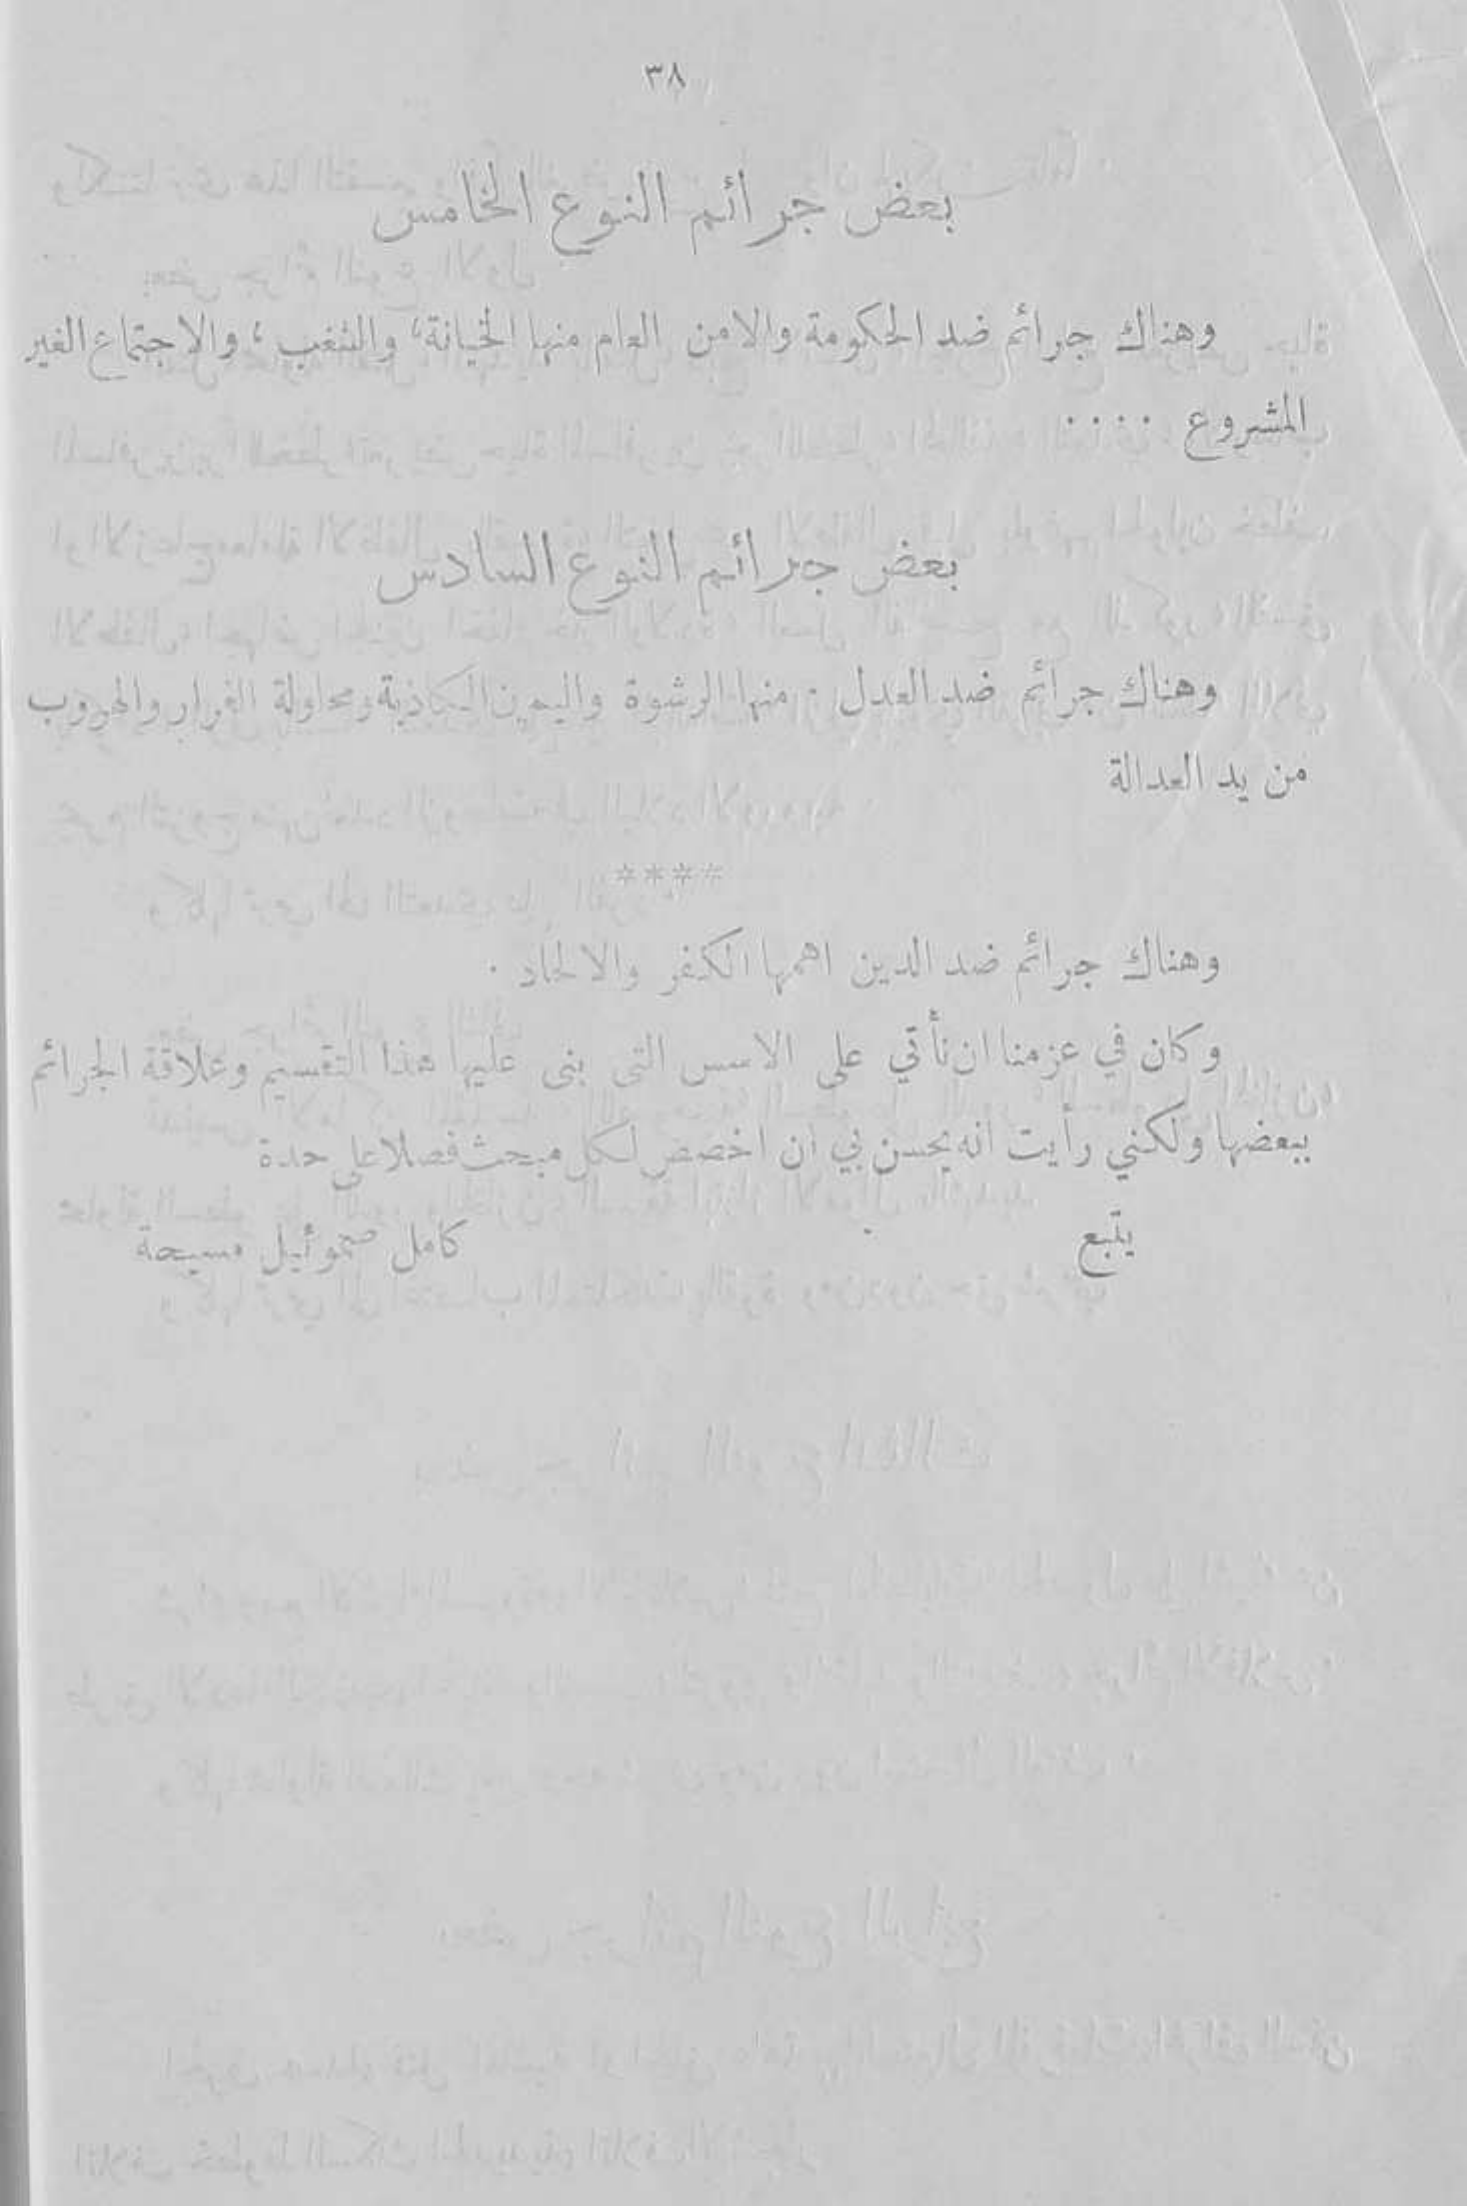 ٣٨
بعض جرائم النوع الخامس
وهناك جرائم ضد الحكومة والامن العام منها الخيانة، والشغب، والاجتماع الغير
المشروع ٠٠٠٠
بعض جرائم النوع السادس
وهناك جرائم ضد العدل ٠ منها الرشوة واليمين الكاذبة ومحاولة الفرار والهروب
من يد العدالة
****
وهناك جرائم ضد الدين اهمها الكفر والالحاد ٠
وكان في عزمنا ان نأتي على الاسس التي بنى عليها هذا التقسيم وعلاقة الجرائم
ببعضها ولكني رأيت انه يحسن بي ان اخصص لكل مبحث فصلا على حدة
يتبع كامل صموئيل مسيحة